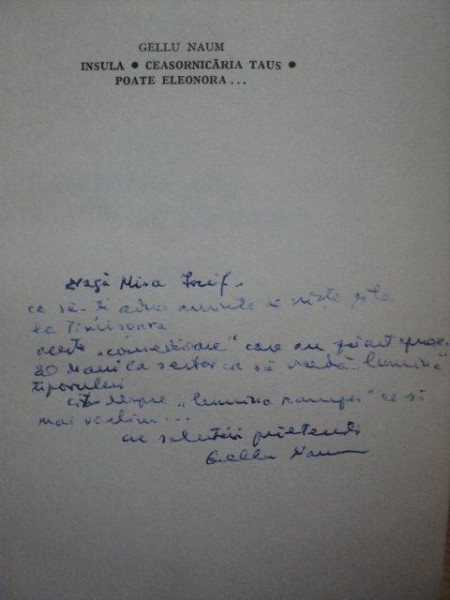 GELLU NAUM
INSULA • CEASORNICĂRIA TAUS •
POATE ELEONORA...
Dragă Mira Iosif,
ca să-ți aduci aminte de niște zile
la Timișoara
aceste „comedioare” care au
20 de ani ca să vadă „lumina”
tiparului
Cât despre „lumina rampei” ce să
mai vorbim...
cu salutări prietenești
Gellu Naum